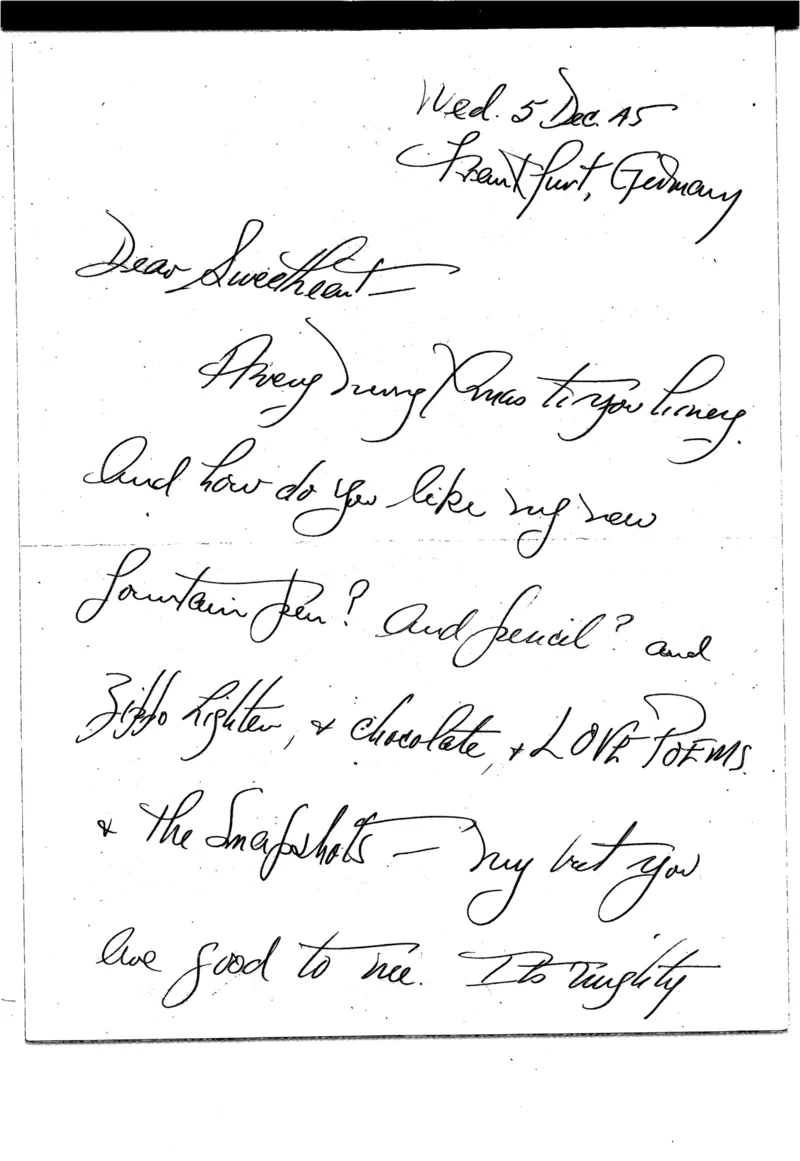 Wed. 5 Dec. 45
Frankfurt, Germany
Dear Sweetheart —
A Very Merry Xmas to you honey.
And how do you like my new
fountain pen? And pencil? and
Zippo Lighter, & chocolate, & LOVE POEMS.
& the Snapshots — My but you
are good to me. Its mighty